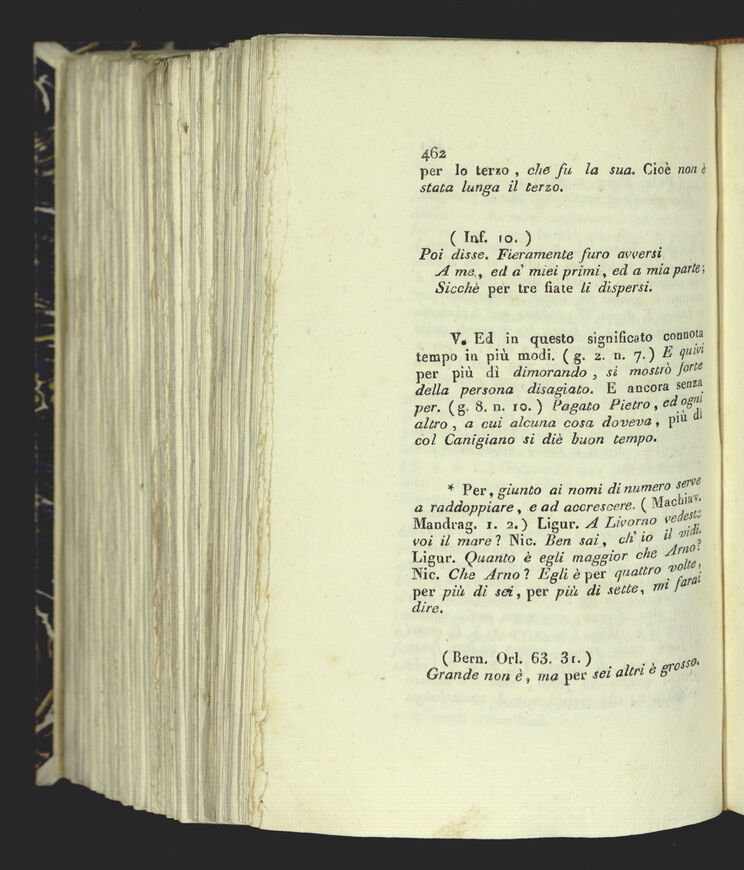 462
per lo terzo , che fu la sua. Cioè non è
stata lunga il terzo.
( Inf. 10. )
Poi disse. Fieramente furo avversi
A me, ed a' miei primi, ed a mia parte;
Sicchè per tre fiate li dispersi.
V. Ed in questo significato connota
tempo in più modi. ( g. 2. n. 7. ) E quivi
per più dì dimorando , si mostrò forte
della persona disagiato. E ancora senza
per. ( g. 8. n. 10. ) Pagato Pietro , ed ogni
altro , a cui alcuna cosa doveva, più dì
col Canigiano si diè buon tempo.
* Per, giunto ai nomi di numero serve
a raddoppiare, e ad accrescere. ( Machiav.
Mandrag. 1. 2. ) Ligur. A Livorno vedeste
voi il mare? Nic. Ben sai, ch' io il vidi.
Ligur. Quanto è egli maggior che Arno?
Nic. Che Arno? Egli è per quattro volte,
per più di sei, per più di sette, mi farai
dire.
( Bern. Orl. 63. 31. )
Grande non è, ma per sei altri è grosso.